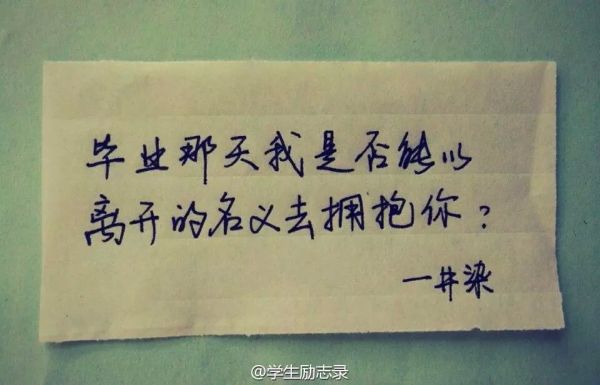 毕业那天我是否能以
离开的名义去拥抱你?
一井染
@学生励志录